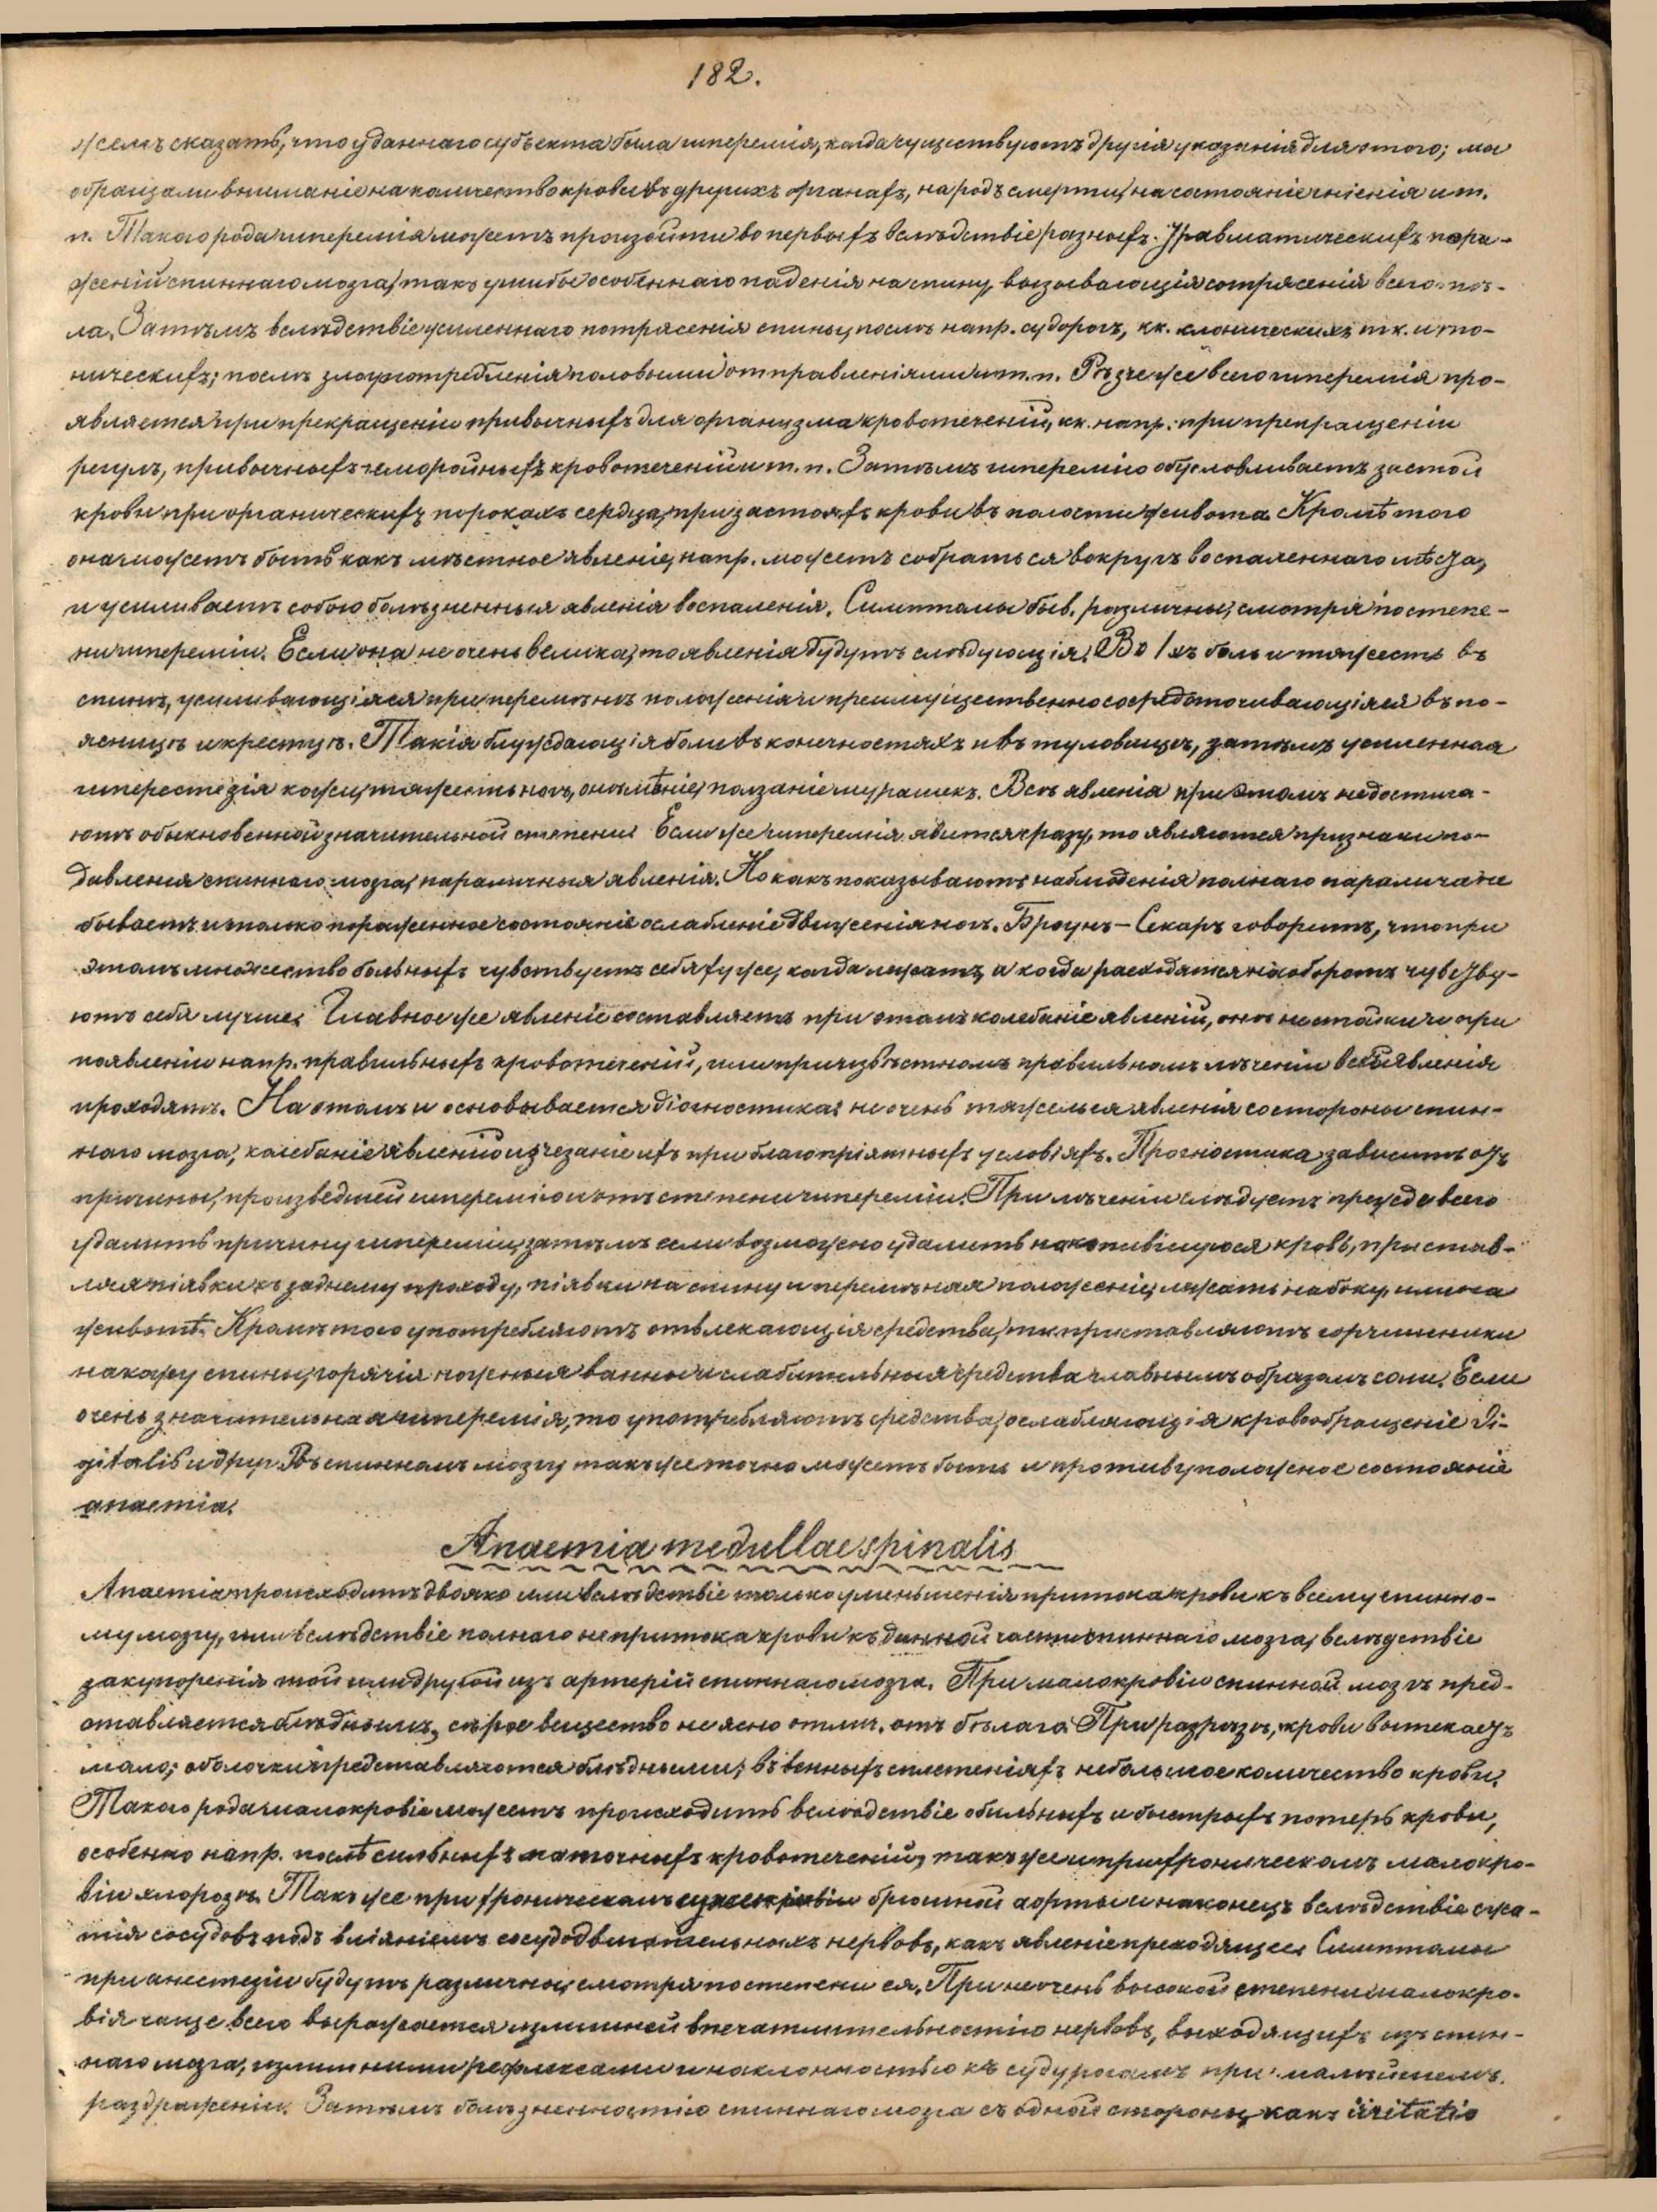 182.
жемъ сказать, что у даннаго субъекта была гиперемія, когда существуютъ другія указанія для этого; мы
обращали вниманіе на количество крови въ другихъ органахъ, на родъ смерти, на состояніе гніенія и т.
п. Такого рода гиперемія можетъ произойти во первыхъ вслѣдствіе разныхъ травматическихъ пора-
женій спиннаго мозга, такъ ушибы особеннаго паденія на спину, вызывающія сотрясенія всего тѣ-
ла. Затѣмъ вслѣдствіе усиленнаго потрясенія спины, послѣ напр. судорогъ, кк. клоническихъ тк. и то-
ническихъ; послѣ злоупотребленія половыми отправленіями и т. п. Рѣзче же всего гиперемія про-
является при прекращеніи привычныхъ для организма кровотеченій, кк. напр. при прекращеніи
регулъ, привычныхъ геморойныхъ кровотеченій и т. п. Затѣмъ гиперемію обусловливаетъ застой
крови при органическихъ порокахъ сердца, при застояхъ крови въ полости живота. Кромѣ того
она можетъ быть какъ мѣстное явленіе, напр. можетъ собраться вокругъ воспаленнаго мѣста,
и усиливаетъ собою болѣзненныя явленія воспаленія. Симптомы быв. различны, смотря по степе-
ни гипереміи. Если она не очень велика, то явленія будутъ слѣдующія: Во 1хъ боль и тяжесть въ
спинѣ, усиливающіяся при перемѣнѣ положенія и преимущественно сосредоточивающіяся въ по-
ясницѣ и крестцѣ. Такія блуждающія боли въ конечностяхъ и въ туловищѣ, затѣмъ усиленная
гиперестезія кожи, тяжесть ногъ, онѣмѣніе, ползаніе мурашекъ. Всѣ явленія при этомъ недостига-
ютъ обыкновенной значительной степени. Если же гиперемія явится сразу, то являются признаки по-
давленія спиннаго мозга, параличныя явленія. Но какъ показываютъ наблюденія полнаго паралича не
бываетъ и только пораженное состояніе ослабленіе движенія ногъ. Броунъ-Секаръ говоритъ, что при
этомъ множество больныхъ чувствуетъ себя хуже, когда лежатъ, а когда расходятся наоборотъ чувству-
ютъ себя лучше. Главное же явленіе составляетъ при этомъ колебаніе явленій, они не стойки и при
появленіи напр. правильныхъ кровотеченій, или при извѣстномъ правильномъ леченіи всѣ явленія
проходятъ. На этомъ и основывается діагностика: не очень тяжелыя явленія со стороны спин-
наго мозга, колебаніе явленій и изчезаніе ихъ при благопріятныхъ условіяхъ. Прогностика зависитъ отъ
причины, произведшей гиперемію и отъ степени гипереміи. При лѣченіи слѣдуетъ прежде всего
удалить причину гипереміи, затѣмъ если возможно удалить накопившуюся кровь, пристав-
ляя піявки къ заднему проходу, піявки на спину и перемѣняя положеніе, лежать на боку, или на
животѣ. Кромѣ того употребляютъ отвлекающія средства, тк. приставляютъ горчишники
на кожу спины, горячія ножныя ванны и слабительныя средства главнымъ образомъ соли. Если
очень значительная гиперемія, то употребляютъ средства, ослабляющія кровообращеніе di-
gitalis и друг. Въ спинномъ мозгу также точно можетъ быть и противуположное состояніе
anaemia.
Anaemia medullae spinalis
Anaemia происходитъ двояко или вслѣдствіе только уменьшенія притока крови къ всему спинно-
му мозгу, или вслѣдствіе полнаго непритока крови къ данной части спиннаго мозга, вслѣдствіе
закупоренія той или другой изъ артерій спиннаго мозга. При малокровіи спинной мозгъ пред-
ставляется блѣднымъ, сѣрое вещество не ясно отлич. отъ бѣлаго. При разрѣзѣ, крови вытекаетъ
мало; оболочки представляются блѣдными; въ венныхъ сплетеніяхъ небольшое количество крови.
Такого рода малокровіе можетъ происходить вслѣдствіе обильныхъ и быстрыхъ потерь крови,
особенно напр. послѣ сильныхъ маточныхъ кровотеченій, также и при хроническомъ малокро-
віи хлорозѣ. Также при хроническомъ брюшной аорты и наконецъ вслѣдствіе сжа-
тія сосудовъ подъ вліяніемъ сосудодвигательныхъ нервовъ, какъ явленіе преходящее. Симптомы
при анестезіи будутъ различны, смотря по степени ея. При не очень высокой степени малокро-
вія чаще всего выражается излишней впечатлительностію нервовъ, выходящихъ изъ спин-
наго мозга, излишними рефлексами и наклонностью къ судорогамъ при малѣйшемъ
раздраженіи. Затѣмъ болѣзненностію спиннаго мозга съ одной стороны, какъ irritatio